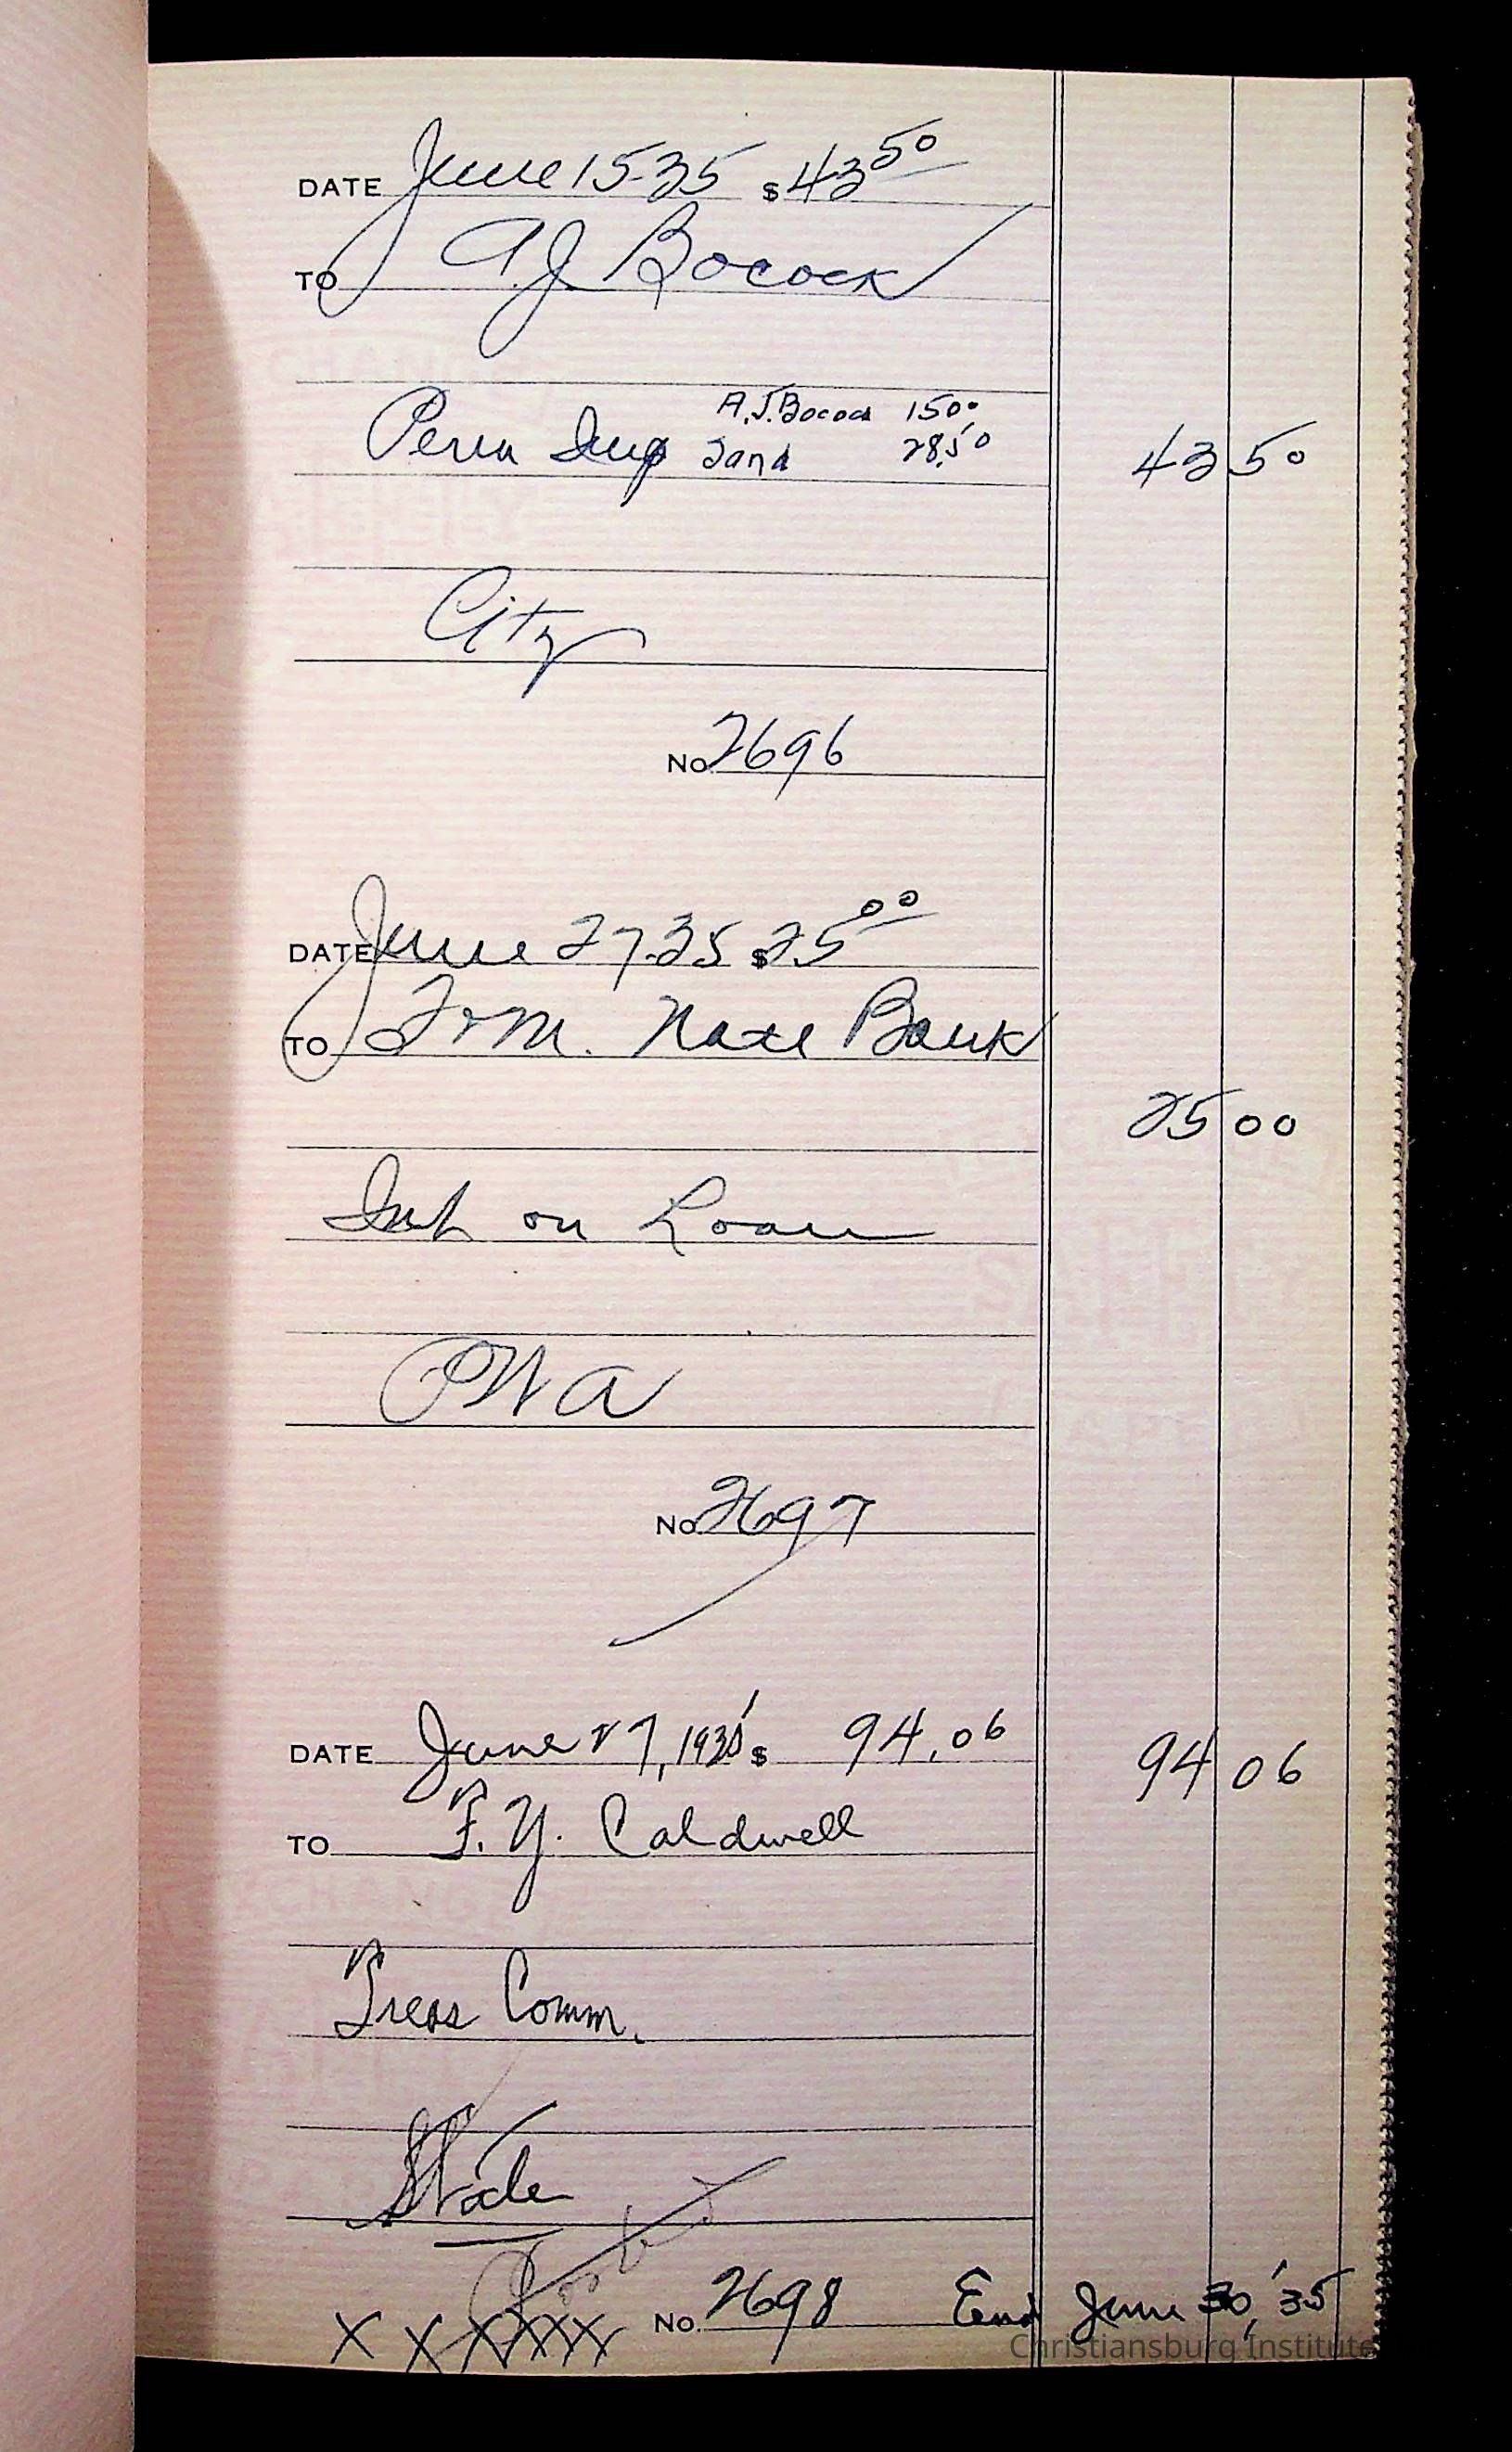 DATE June 15-35 $ 43 50
TO A J Bocock
A.J. Bocock 15 00
Perm Imp Sand 28.50 43 50
City
No 2696
DATE June 27-35 $ 25 00
TO F & M. Natl Bank
25 00
Int on Loan
PWA
No 2697
DATE June 27, 1935 $ 94.06 94 06
TO F. Y. Caldwell
Treas Comm.
State
Posted
X X X X X X No. 2698 End June 30, '35
Christiansburg Institute